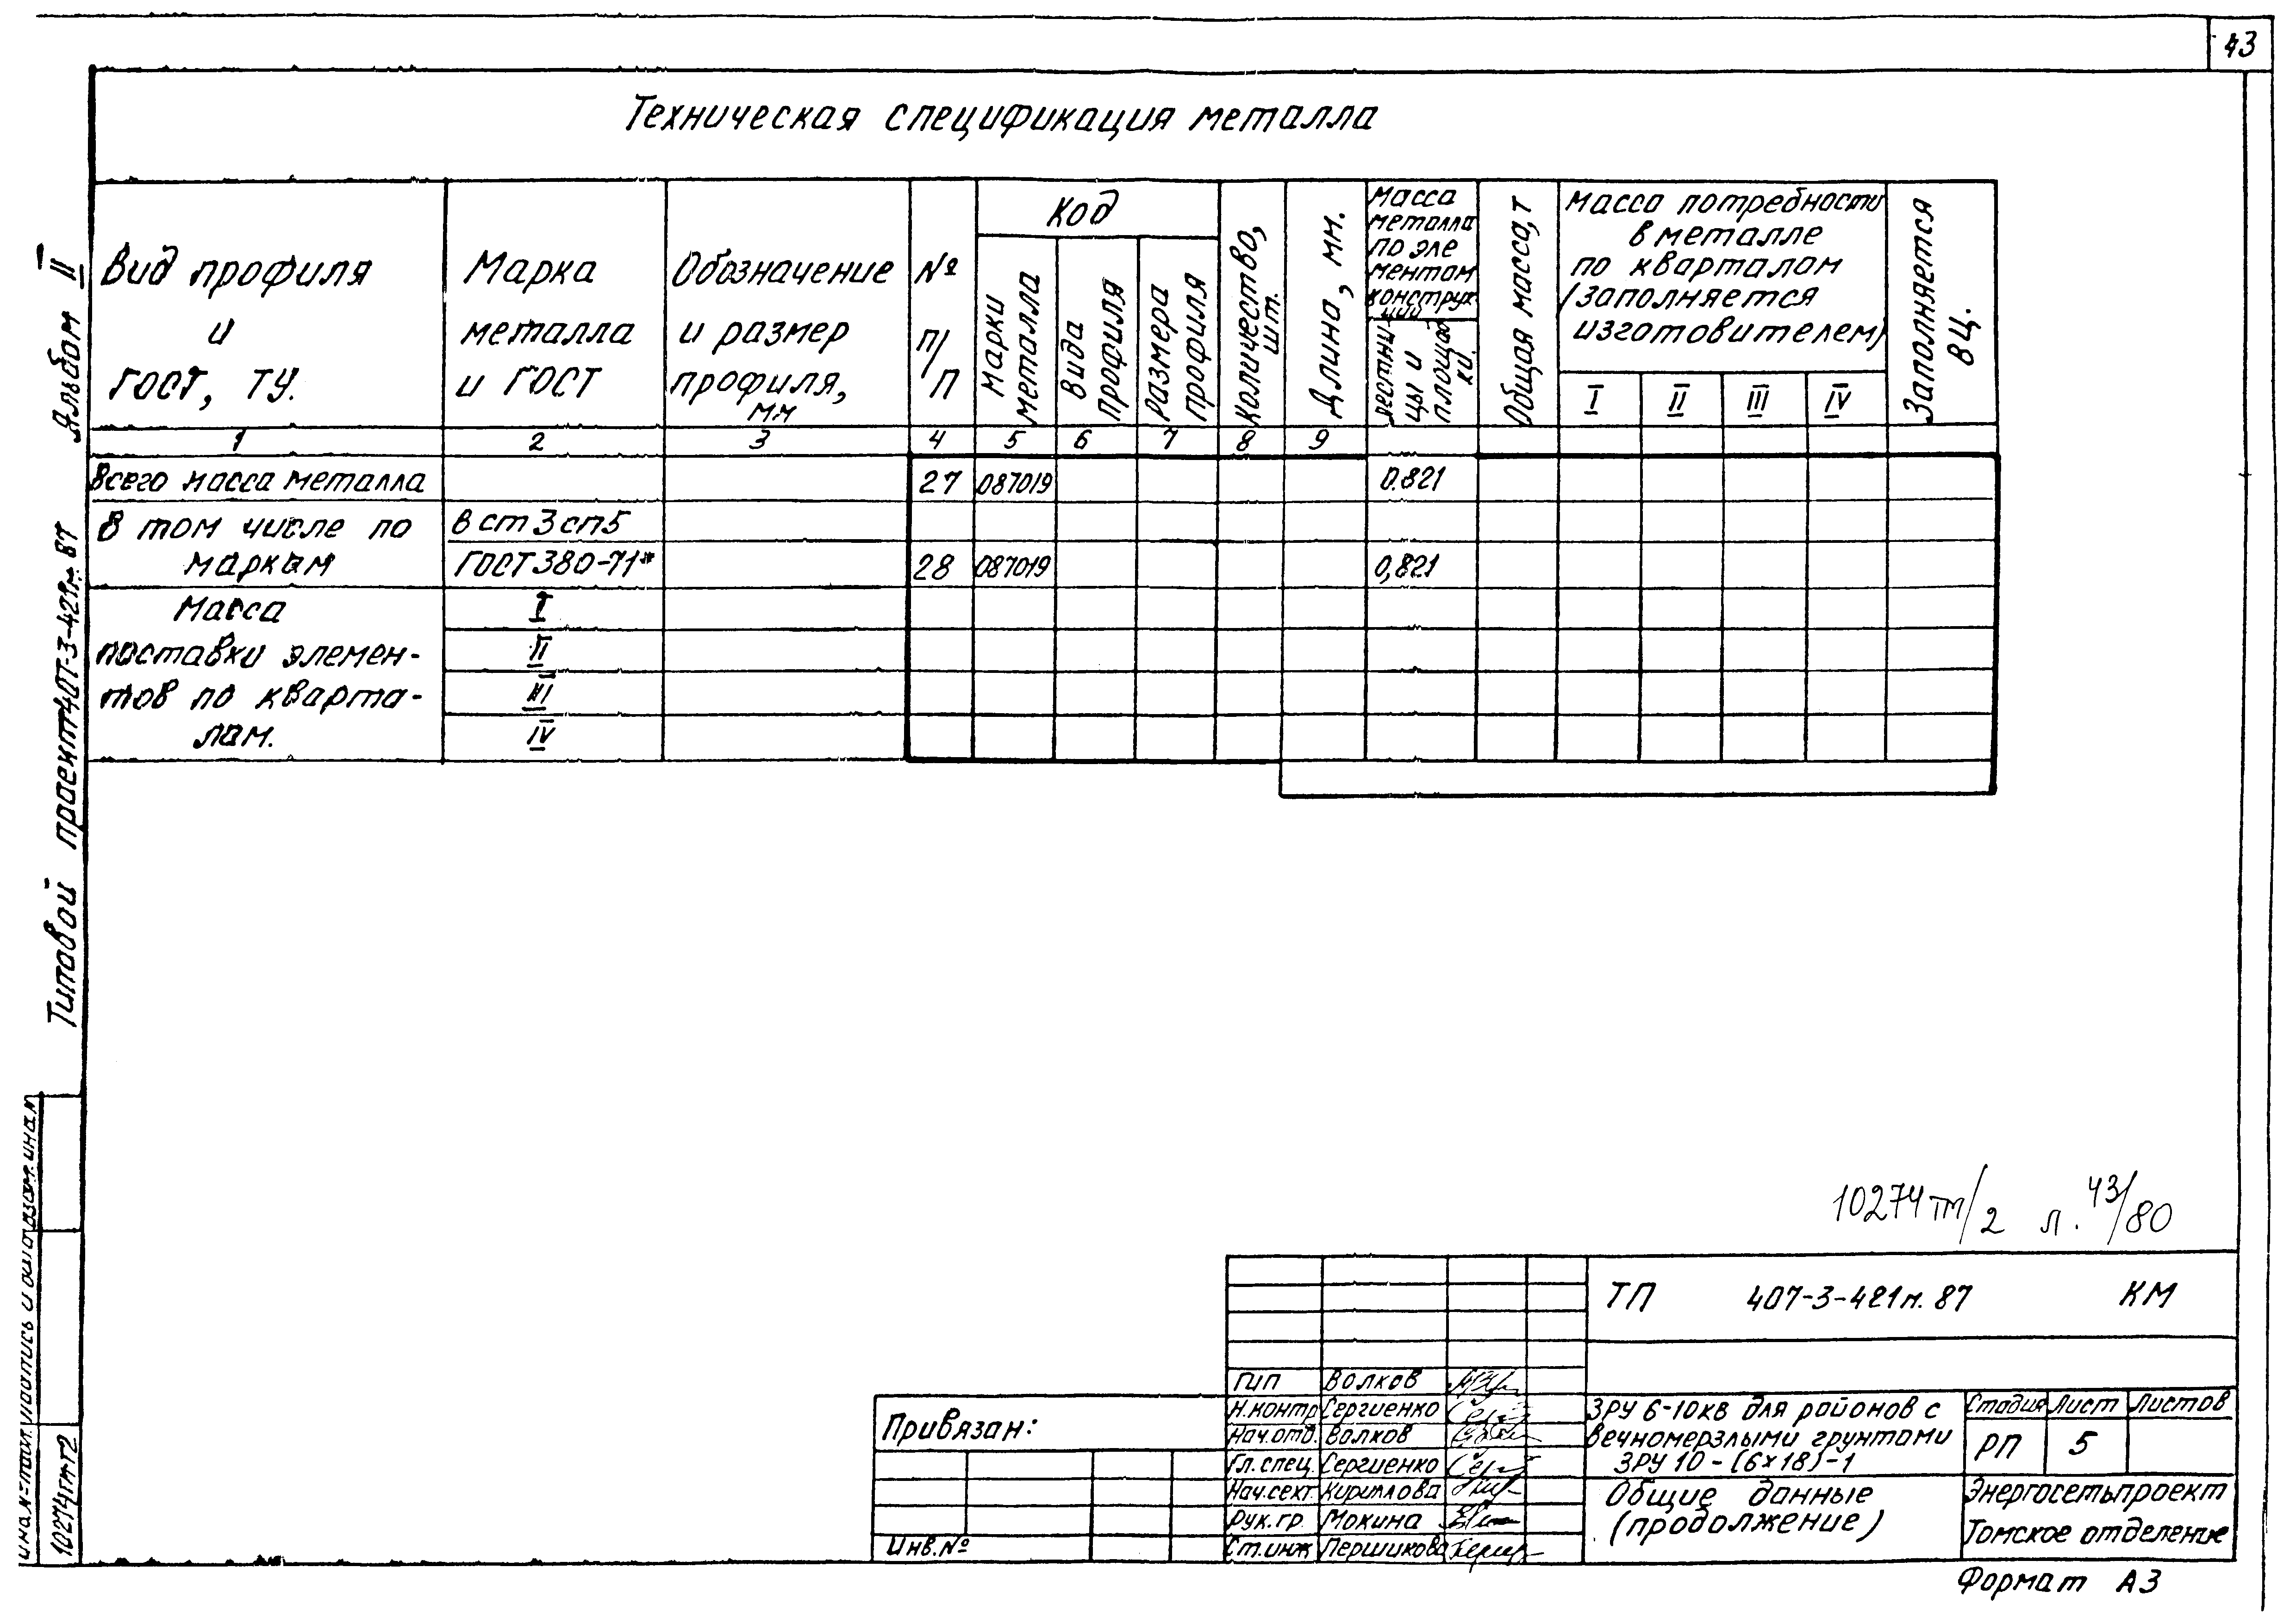 43
Техническая спецификация металла
Вид профиля
и
ГОСТ, ТУ.
Марка
металла
и ГОСТ
Обозначение
и размер
профиля,
мм
№
п/п
Код
Марки
металла
Вида
профиля
Размера
профиля
Количество,
шт.
Длина, мм.
Масса
металла
по эле
ментам
конструк
ции
Лестни
цы и
площад
ки.
Общая масса, т
Масса потребности
в металле
по кварталам
(заполняется
изготовителем)
I II III IV
Заполняется
ВЦ.
1 2 3 4 5 6 7 8 9
Всего масса металла 27 087019 0.821
В том числе по
маркам
В ст 3 сп5
ГОСТ 380-71* 28 087019 0,821
Масса
поставки элемен-
тов по кварта-
лам.
I
II
III
IV
Альбом II
Типовой проект 407-3-421м. 87
Взам. инв. №
Подпись и дата
Инв. № подл.
10274тм-т2
10274тм/2 л. 43/80
ТП 407-3-421м. 87 КМ
Привязан:
Инв. №
ГИП Волков
Н.контр Сергиенко
Нач.отд. Волков
Гл.спец. Сергиенко
Нач.сект. Кириллова
Рук.гр. Мокина
Ст.инж Першикова
ЗРУ 6-10кв для районов с
вечномерзлыми грунтами
ЗРУ 10-(6×18)-1
Стадия Лист Листов
РП 5
Общие данные
(продолжение)
Энергосетьпроект
Томское отделение
Формат А3